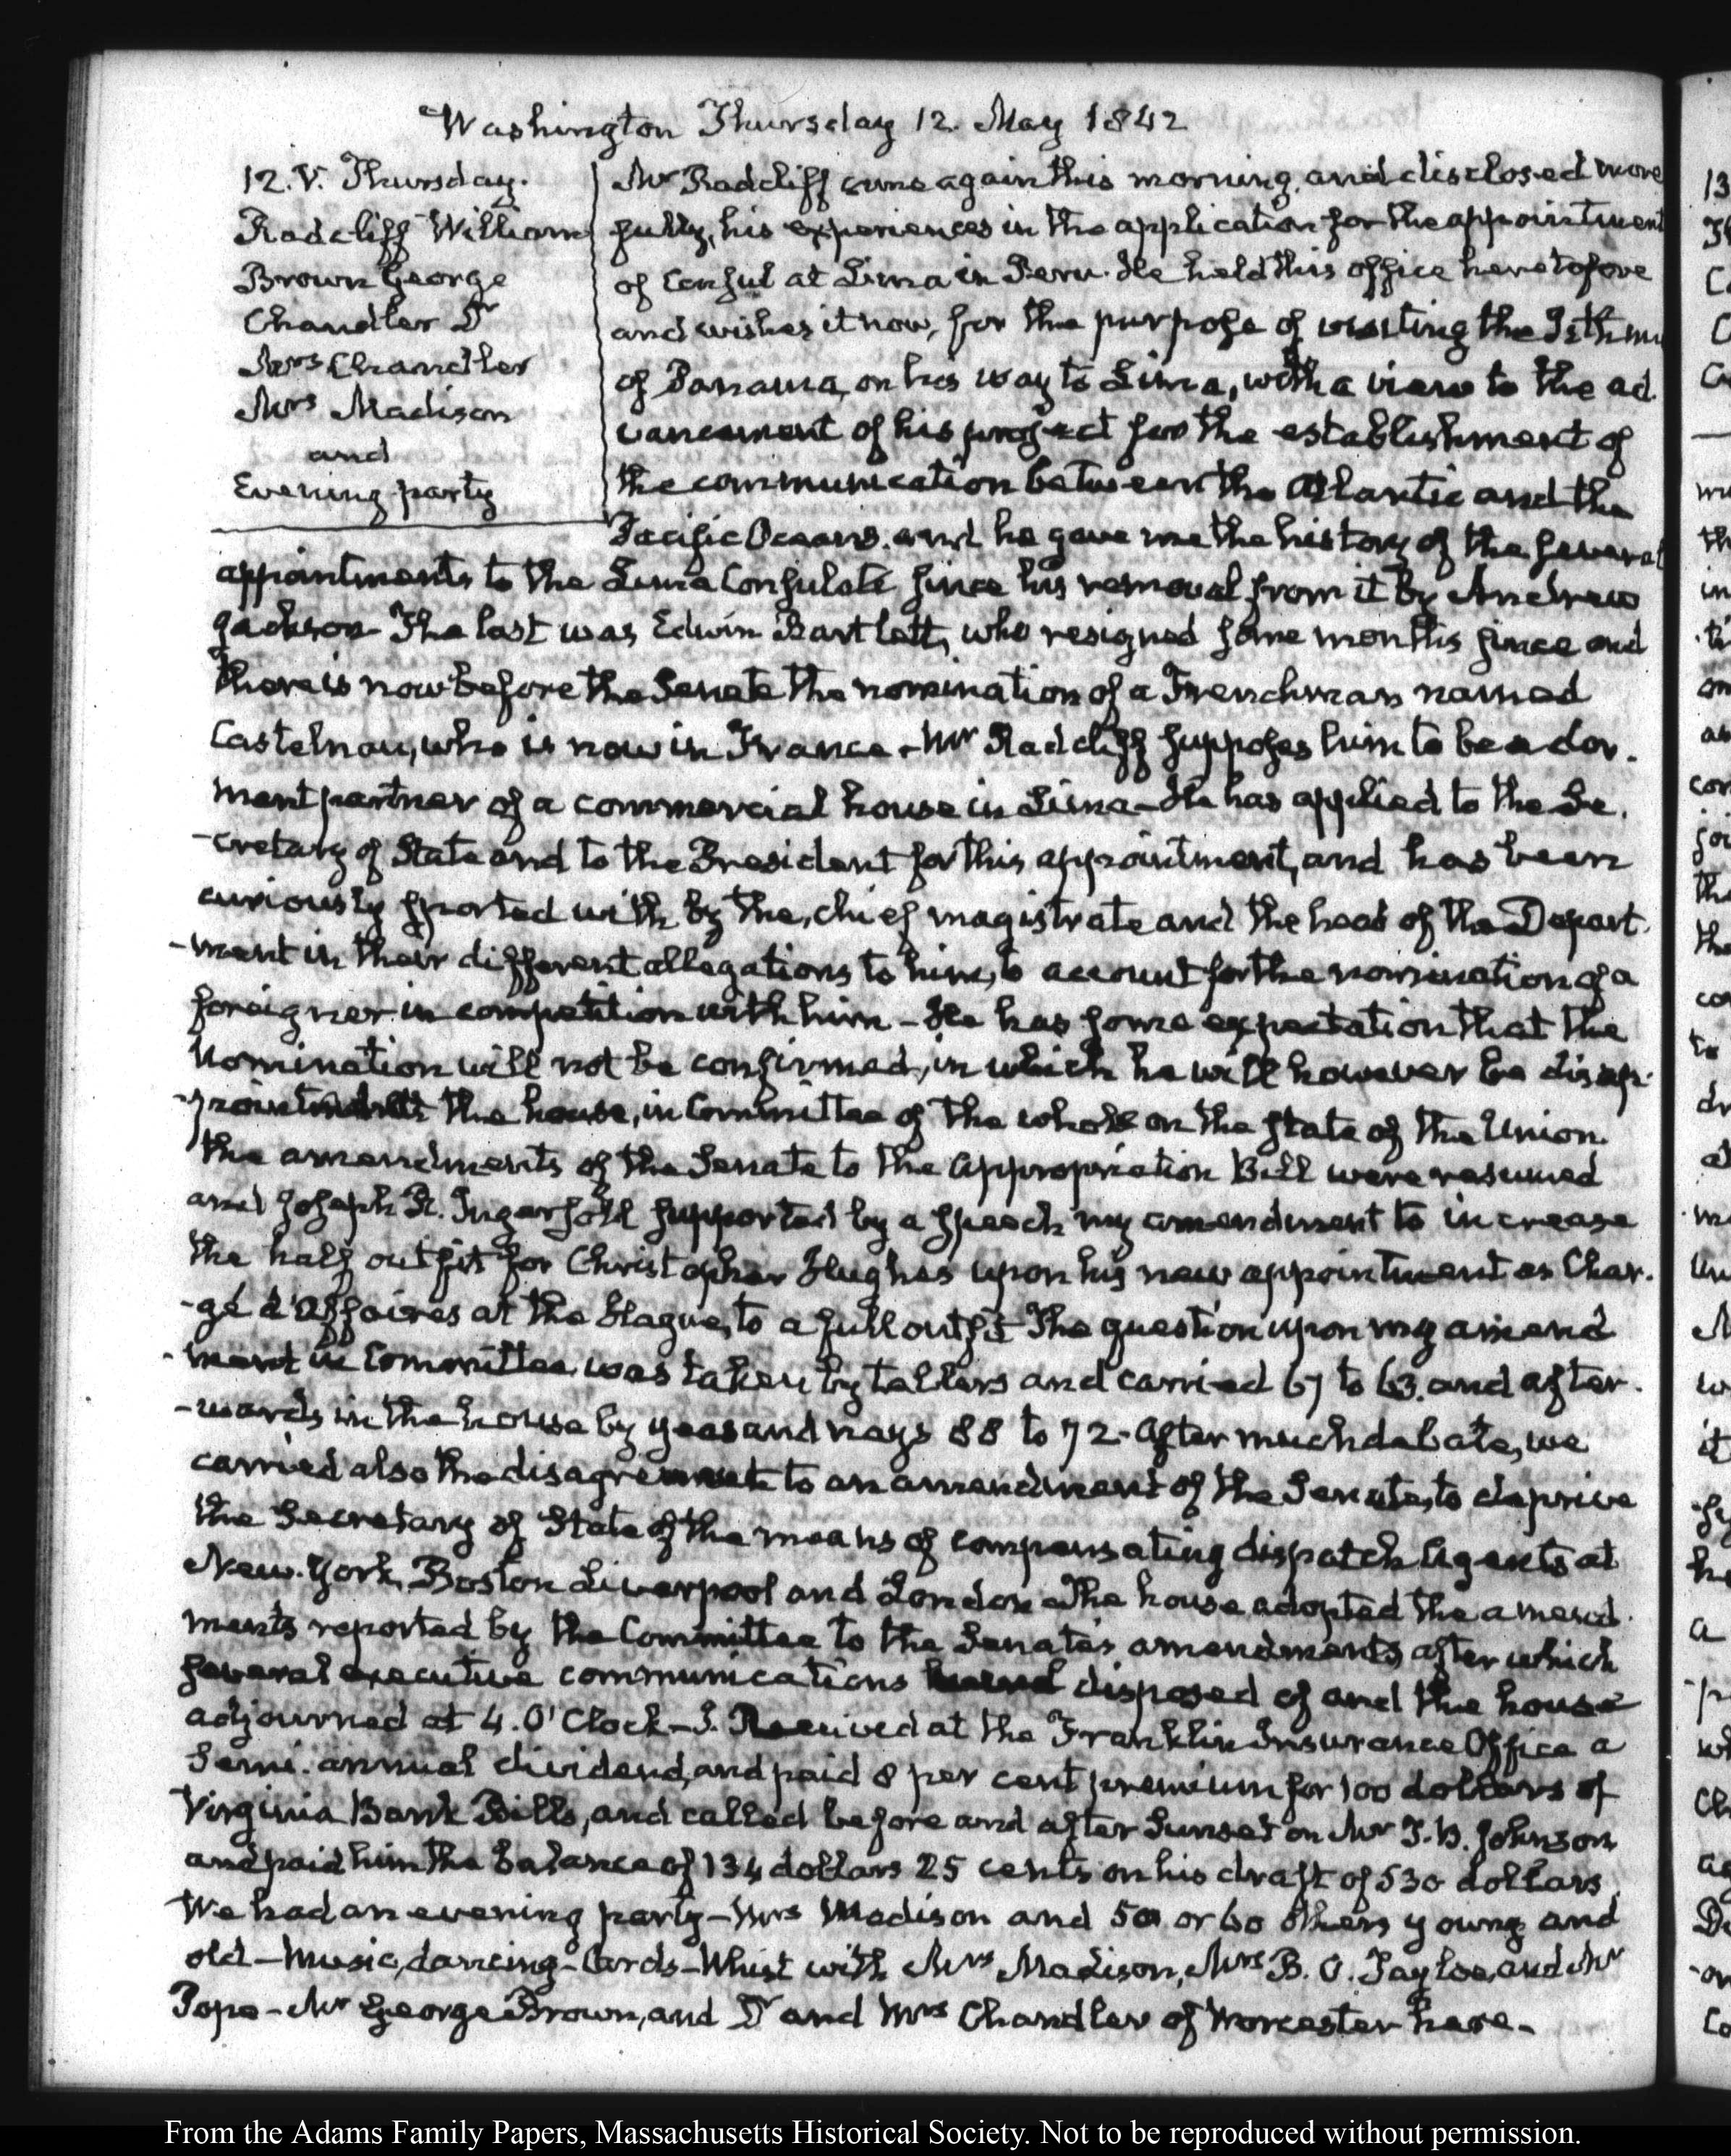 Washington Thursday 12. May 1842
12. V. Thursday.
Radcliff William
Brown George
Chandler Dr
Mrs Chandler
Mrs Madison
and
Evening party
Mr Radcliff came again this morning, and disclosed more
fully, his experiences in the application for the appointment
of Consul at Lima in Peru. He held this office heretofore
and wishes it now, for the purpose of visiting the Isthmu
of Panama, on his way to Lima, with a view to the ad
vancement of his project for the establishment of
the communication between the Atlantic and the
Pacific Oceans. and he gave me the history of the several
appointments to the Lima Consulate since his removal from it by Andrew
Jackson. The last was Edwin Bartlett, who resigned some months since and
there is now before the Senate the nomination of a Frenchman named
Castelnau, who is now in France. Mr Radcliff supposes him to be a dor.
mant partner of a commercial house in Lima – He has applied to the Se.
-cretary of State and to the President for this appointment, and has been
curiously sported with by the, chief magistrate and the head of the Depart.
-ment in their different allegations to him, to account for the nomination of a
foreigner in competition with him – He has some expectation that the
nomination will not be confirmed, in which he will however be disap.
the house, in Committee of the whole on the state of the Union.
the amendments of the Senate to the Appropriation Bill were resumed
and Joseph R. Ingersoll supported by a speech my amendment to increase
the half outfit for Christopher Hughes upon his new appointment as Char.
-gé d'Affaires at the Hague, to a full outfit The question upon my amend
-ment in Committee was taken by tellers and carried 67 to 63. and after.
-wards in the house by yeas and nays 88 to 72. After much debate, we
carried also the disagreement to an amendment of the Senate, to deprive
the Secretary of State of the means of compensating dispatch Agents at
New-York, Boston Liverpool and London. The house adopted the amend.
ments reported by the Committee to the Senate's amendments, after which
several executive communications disposed of and the house
adjourned at 4. O'Clock – I. Received at the Franklin Insurance Office a
Semi-annual dividend, and paid 8 per cent premium for 100 dollars of
Virginia Bank Bills, and called before and after Sunset on Mr T. B. Johnson
and paid him the balance of 134 dollars 25 cents on his draft of 530 dollars.
We had an evening party – Mrs Madison and 50 or 60 others young and
old – Music, dancing – Cards – Whist with Mrs Madison, Mrs B. O. Tayloe, and Mr
Pope – Mr George Brown, and Dr and Mrs Chandler of Worcester here. –
From the Adams Family Papers, Massachusetts Historical Society. Not to be reproduced without permission.